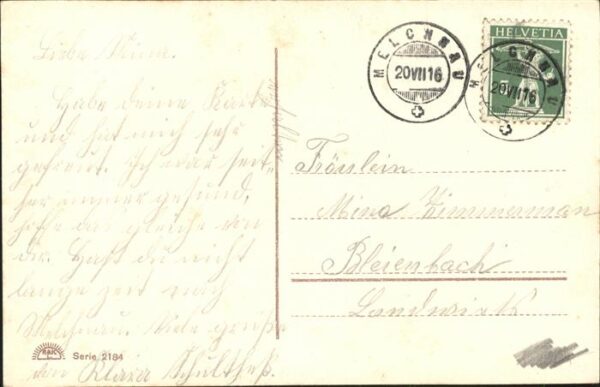 Liebe Mina.
Habe deine Karte
und hat mich sehr
gefreut. Ich war seit-
her immer gesund,
hoffe das gleiche von
dir. Hast du nicht
lange Zeit nach
Melchnau. Viele Grüsse
von Klara Schultheß.
Serie 2184
MELCHNAU
20 VII 16
HELVETIA
MELCHNAU
20 VII 16
Fräulein
Mina Zimmerman
Bleienbach
Landwirts